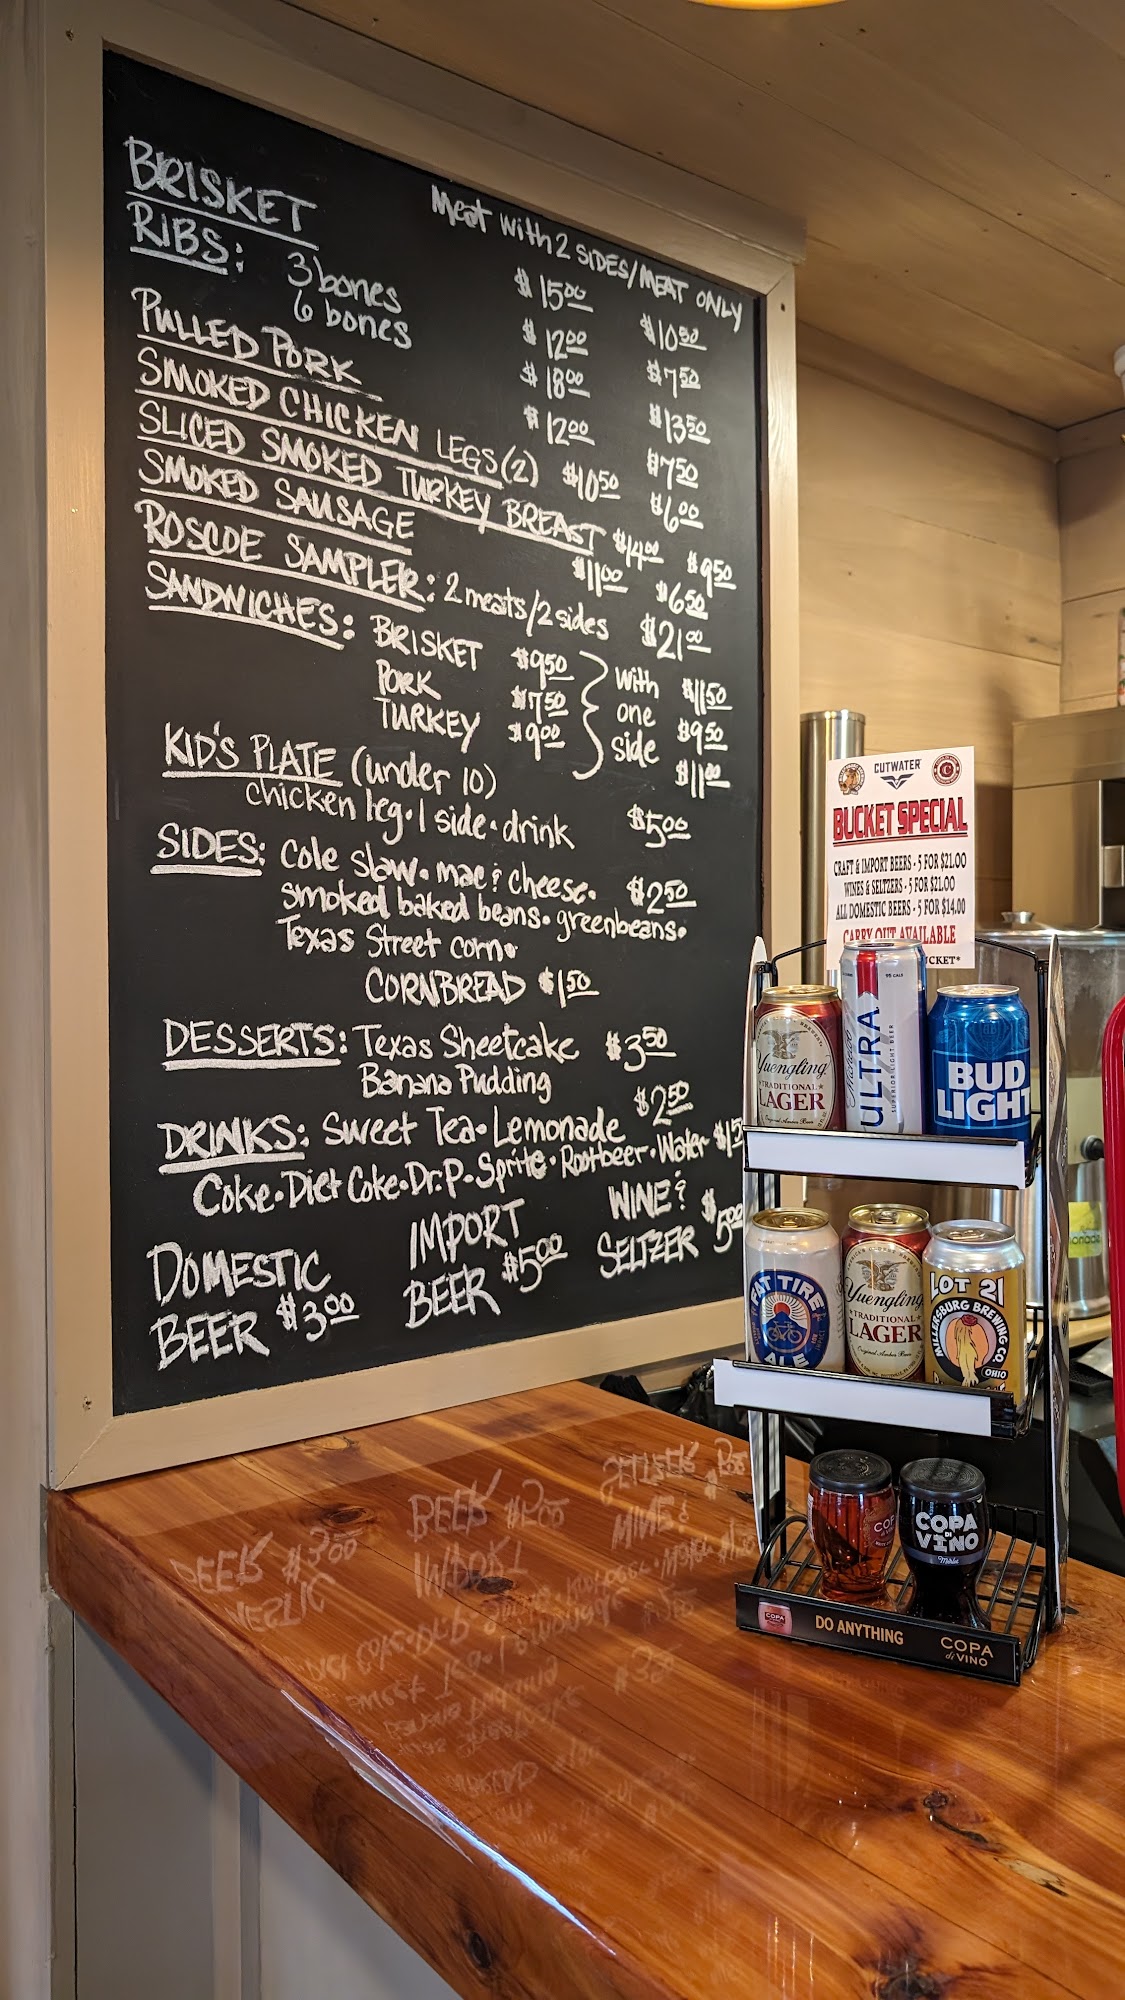 Meat with 2 SIDES/MEAT ONLY
BRISKET $15.00 $10.50
RIBS: 3 bones $12.00 $7.50
6 bones $18.00 $13.50
PULLED PORK $12.00 $7.50
SMOKED CHICKEN LEGS (2) $10.50 $6.00
SLICED SMOKED TURKEY BREAST $14.00 $9.50
SMOKED SAUSAGE $11.00 $6.50
ROSCOE SAMPLER: 2 meats/2 sides $21.00
SANDWICHES: BRISKET $9.50 with $11.50
PORK $7.50 one $9.50
TURKEY $9.00 side $11.00
KID'S PLATE (under 10)
chicken leg • 1 side • drink $5.00
SIDES: cole slaw • mac & cheese • $2.50
smoked baked beans • greenbeans •
Texas Street corn •
CORNBREAD $1.50
DESSERTS: Texas Sheetcake $3.50
Banana Pudding $2.50
DRINKS: Sweet Tea • Lemonade
Coke • Diet Coke • Dr. P • Sprite • Rootbeer • Water
DOMESTIC BEER $3.00
IMPORT BEER $5.00
WINE & SELTZER $5.00
CUTWATER
BUCKET SPECIAL
CRAFT & IMPORT BEERS - 5 FOR $21.00
WINES & SELTZERS - 5 FOR $21.00
ALL DOMESTIC BEERS - 5 FOR $14.00
CARRY OUT AVAILABLE
Yuengling
TRADITIONAL
LAGER
Original Amber Beer
95 CALS
Michelob
ULTRA
SUPERIOR LIGHT BEER
BUD
LIGHT
FAT TIRE
ALE
Yuengling
TRADITIONAL
LAGER
Original Amber Beer
LOT 21
MILLERSBURG BREWING CO.
OHIO
COPA
COPA
DI
VINO
Merlot
COPA
DO ANYTHING
COPA
di VINO